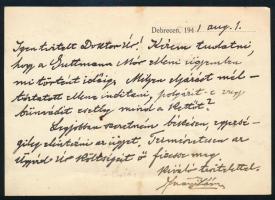 Debrecen, 1941 aug. 1.
Igen tisztelt Doktor Úr! Kérem tudatni,
hogy a Guttmann Mór elleni ügyemben
mi történt idáig. Milyen eljárást mél-
tóztatott ellene indítani, polgárit e vagy
bűnvádit esetleg mind a kettőt?
Legjobban szeretném békésen, egyesé-
gileg elintézni az ügyet. Természetesen az
Ügyvéd Úr költségeit ő fizesse meg.
Kiváló tisztelettel